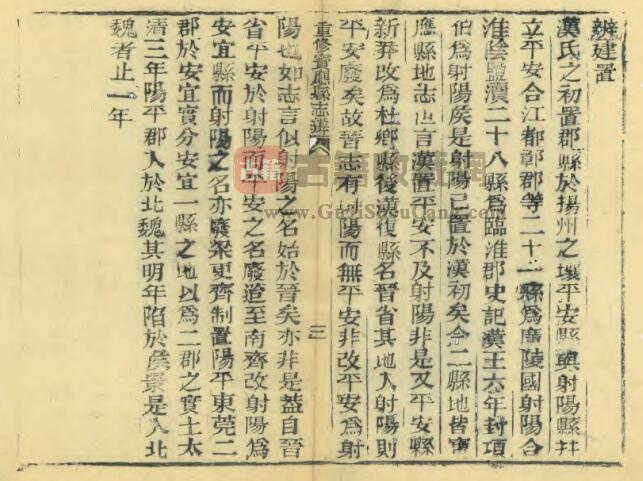 辨建置
漢氏之初置郡縣於揚州之壤平安縣與射陽縣并
立平安合江都鄣郡等二十一縣爲廣陵國射陽合
淮陰鹽瀆二十八縣爲臨淮郡史記漢王六年封項
伯爲射陽矦是射陽已置於漢初矣今二縣地皆寳
應縣地志止言漢置平安不及射陽非是又平安縣
新莽改爲杜鄉縣後漢復縣名晉省其地入射陽則
平安廢矣故晉志有射陽而無平安非改平安爲射
重修寳應縣志辨
三
陽也如志言似射陽之名始於晉矣亦非是葢自晉
省平安於射陽而平安之名廢迨至南齊改射陽爲
安宜縣而射陽之名亦廢梁更齊制置陽平東莞二
郡於安宜實分安宜一縣之地以爲二郡之實土太
清三年陽平郡入於北魏其明年陷於矦景是入北
魏者止一年
古籍
古籍收藏网
www.GuJiShouCang.com